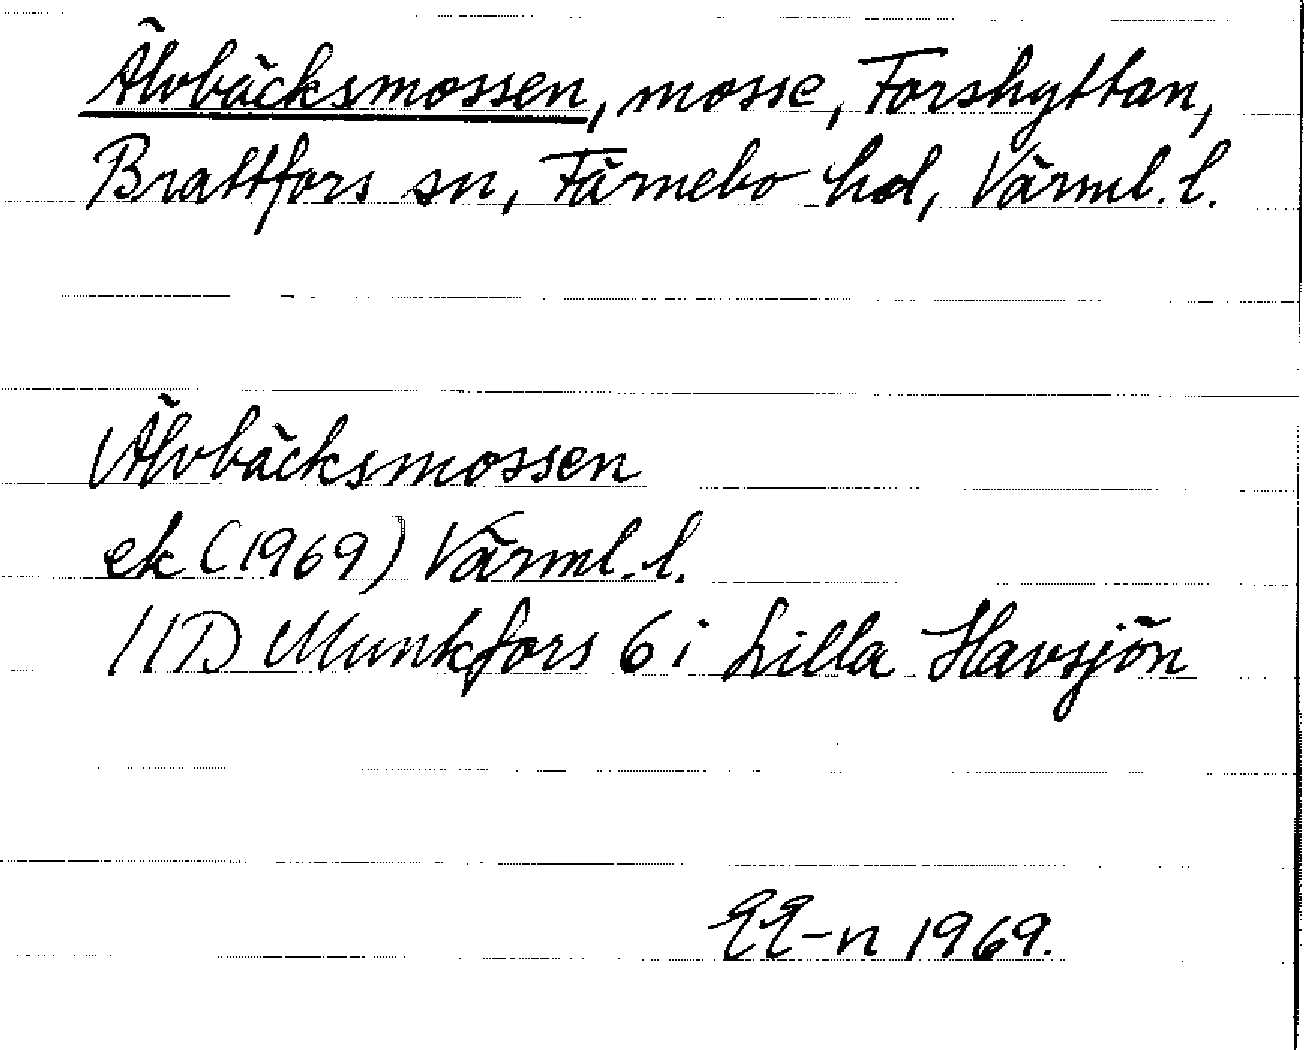 Älvbäcksmossen, mosse, Forshyttan,
Brattfors sn, Färnebo hd, Värml. l.
Älvbäcksmossen
ek (1969) Värml. l.
11D Munkfors 6 i Lilla Havsjön
EE-n 1969.